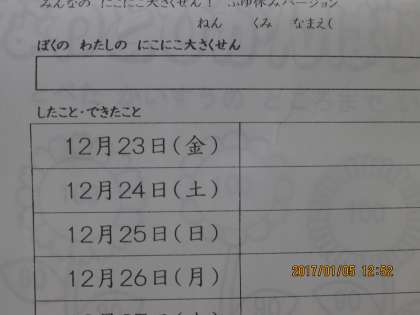 みんなの にこにこ大さくせん！ ふゆ休みバージョン
ねん くみ なまえ(
ぼくの わたしの にこにこ大さくせん
したこと・できたこと
12月23日(金)
12月24日(土)
12月25日(日)
12月26日(月)
2017/01/05 12:52